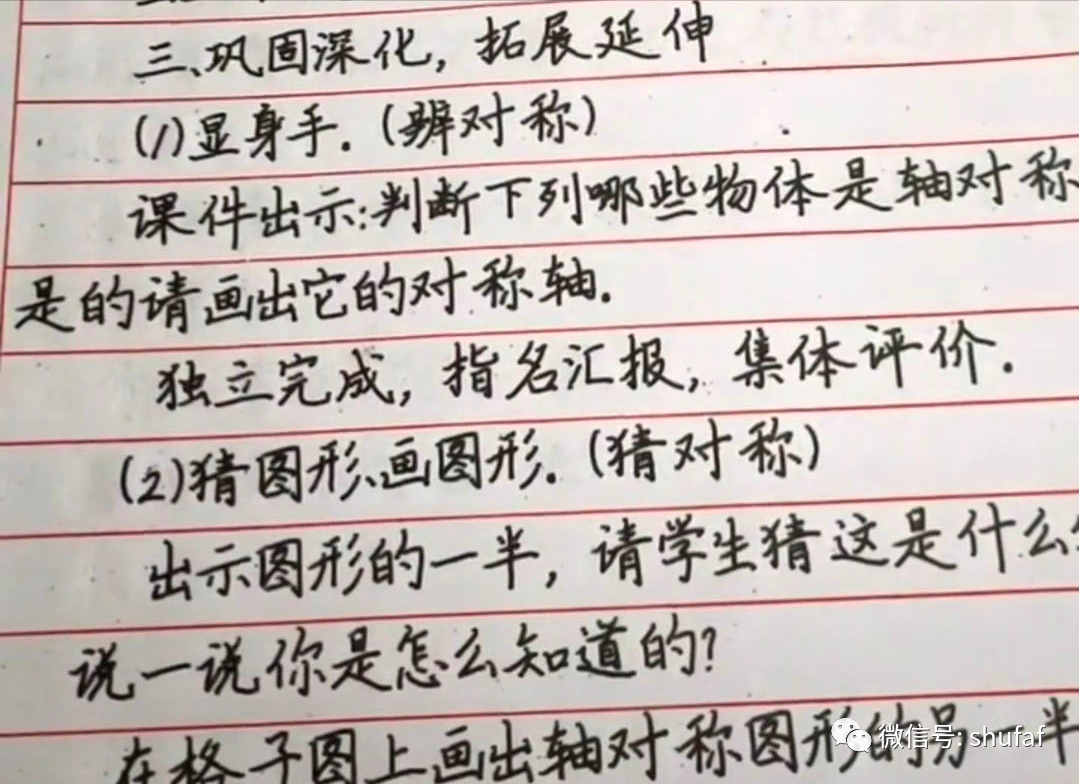 三、巩固深化，拓展延伸
(1)显身手.(辨对称)
课件出示:判断下列哪些物体是轴对称
是的请画出它的对称轴.
独立完成，指名汇报，集体评价.
(2)猜图形、画图形.(猜对称)
出示图形的一半，请学生猜这是什么
说一说你是怎么知道的?
在格子图上画出轴对称图形的另一半
微信号: shufaf